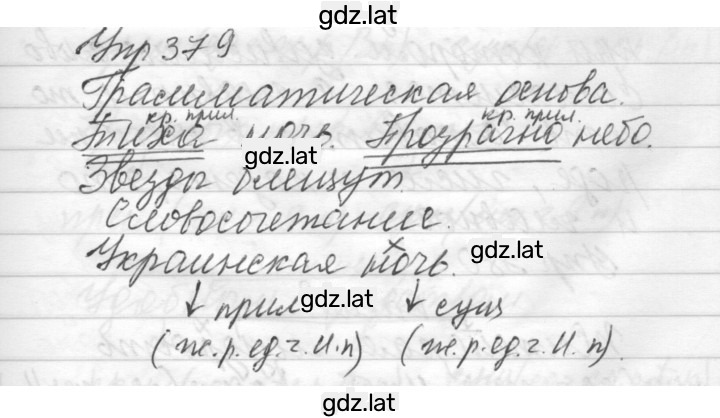 gdz.lat
Упр 379
Грамматическая основа.
кр. прил. кр. прил.
Тиха ночь. Прозрачно небо.
gdz.lat
Звезды блещут.
Словосочетание.
gdz.lat
Украинская ночь.
х
gdz.lat
↓ прил ↓ сущ
(ж.р.ед.ч.И.п) (ж.р.ед.ч.И.п).
gdz.lat